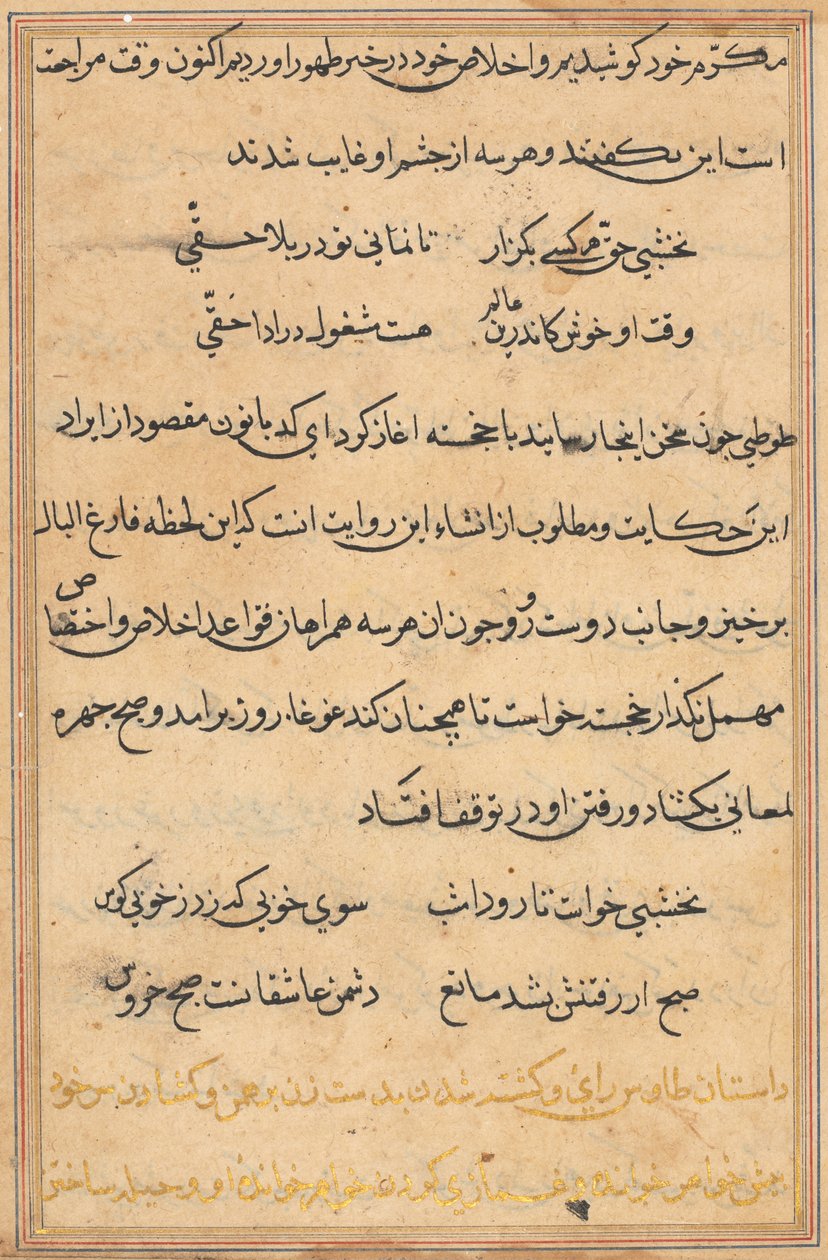 مکرّم خود کوشیدیم و اخلاص خود در خیر ظهور اوردیم اکنون وقت مراجعت
است این بگفتند و هر سه از چشم او غایب شدند
نخشبی حقّ هر کسی بکزار تا نمانی تو در بلا حقّی
وقت او خوش کاندرین عالم هست مشغول در ادا حَقّی
طوطی چون سخن اینجا رسایند با خجسته اغاز کرد ای کدبانو مقصود از ایراد
این حکایت و مطلوب از انشاء این روایت انست که این لحظه فارغ البال
برخیز و جانب دوست رو و چون ان هر سه همراهان قواعد اخلاص و اختصاص
مهمل نکذار خجسته خواست تا همچنان کند غوغا روز برامد و صبح چهره
لمعانی بکشاد و رفتن او در توقف افتاد
نخشبی خواست تا رود امشب سوی خوبی که زد ز خوبی کوس
صبح از رفتنش بشد مانع دشمن عاشقانست صبح خروس
داستان طاوس رای و کشته شدن بدست زن برهمن و کشادن سر خود
پیش خواهر خوانده و غمازی کردن خواهر خوانده او و حیله ساختن